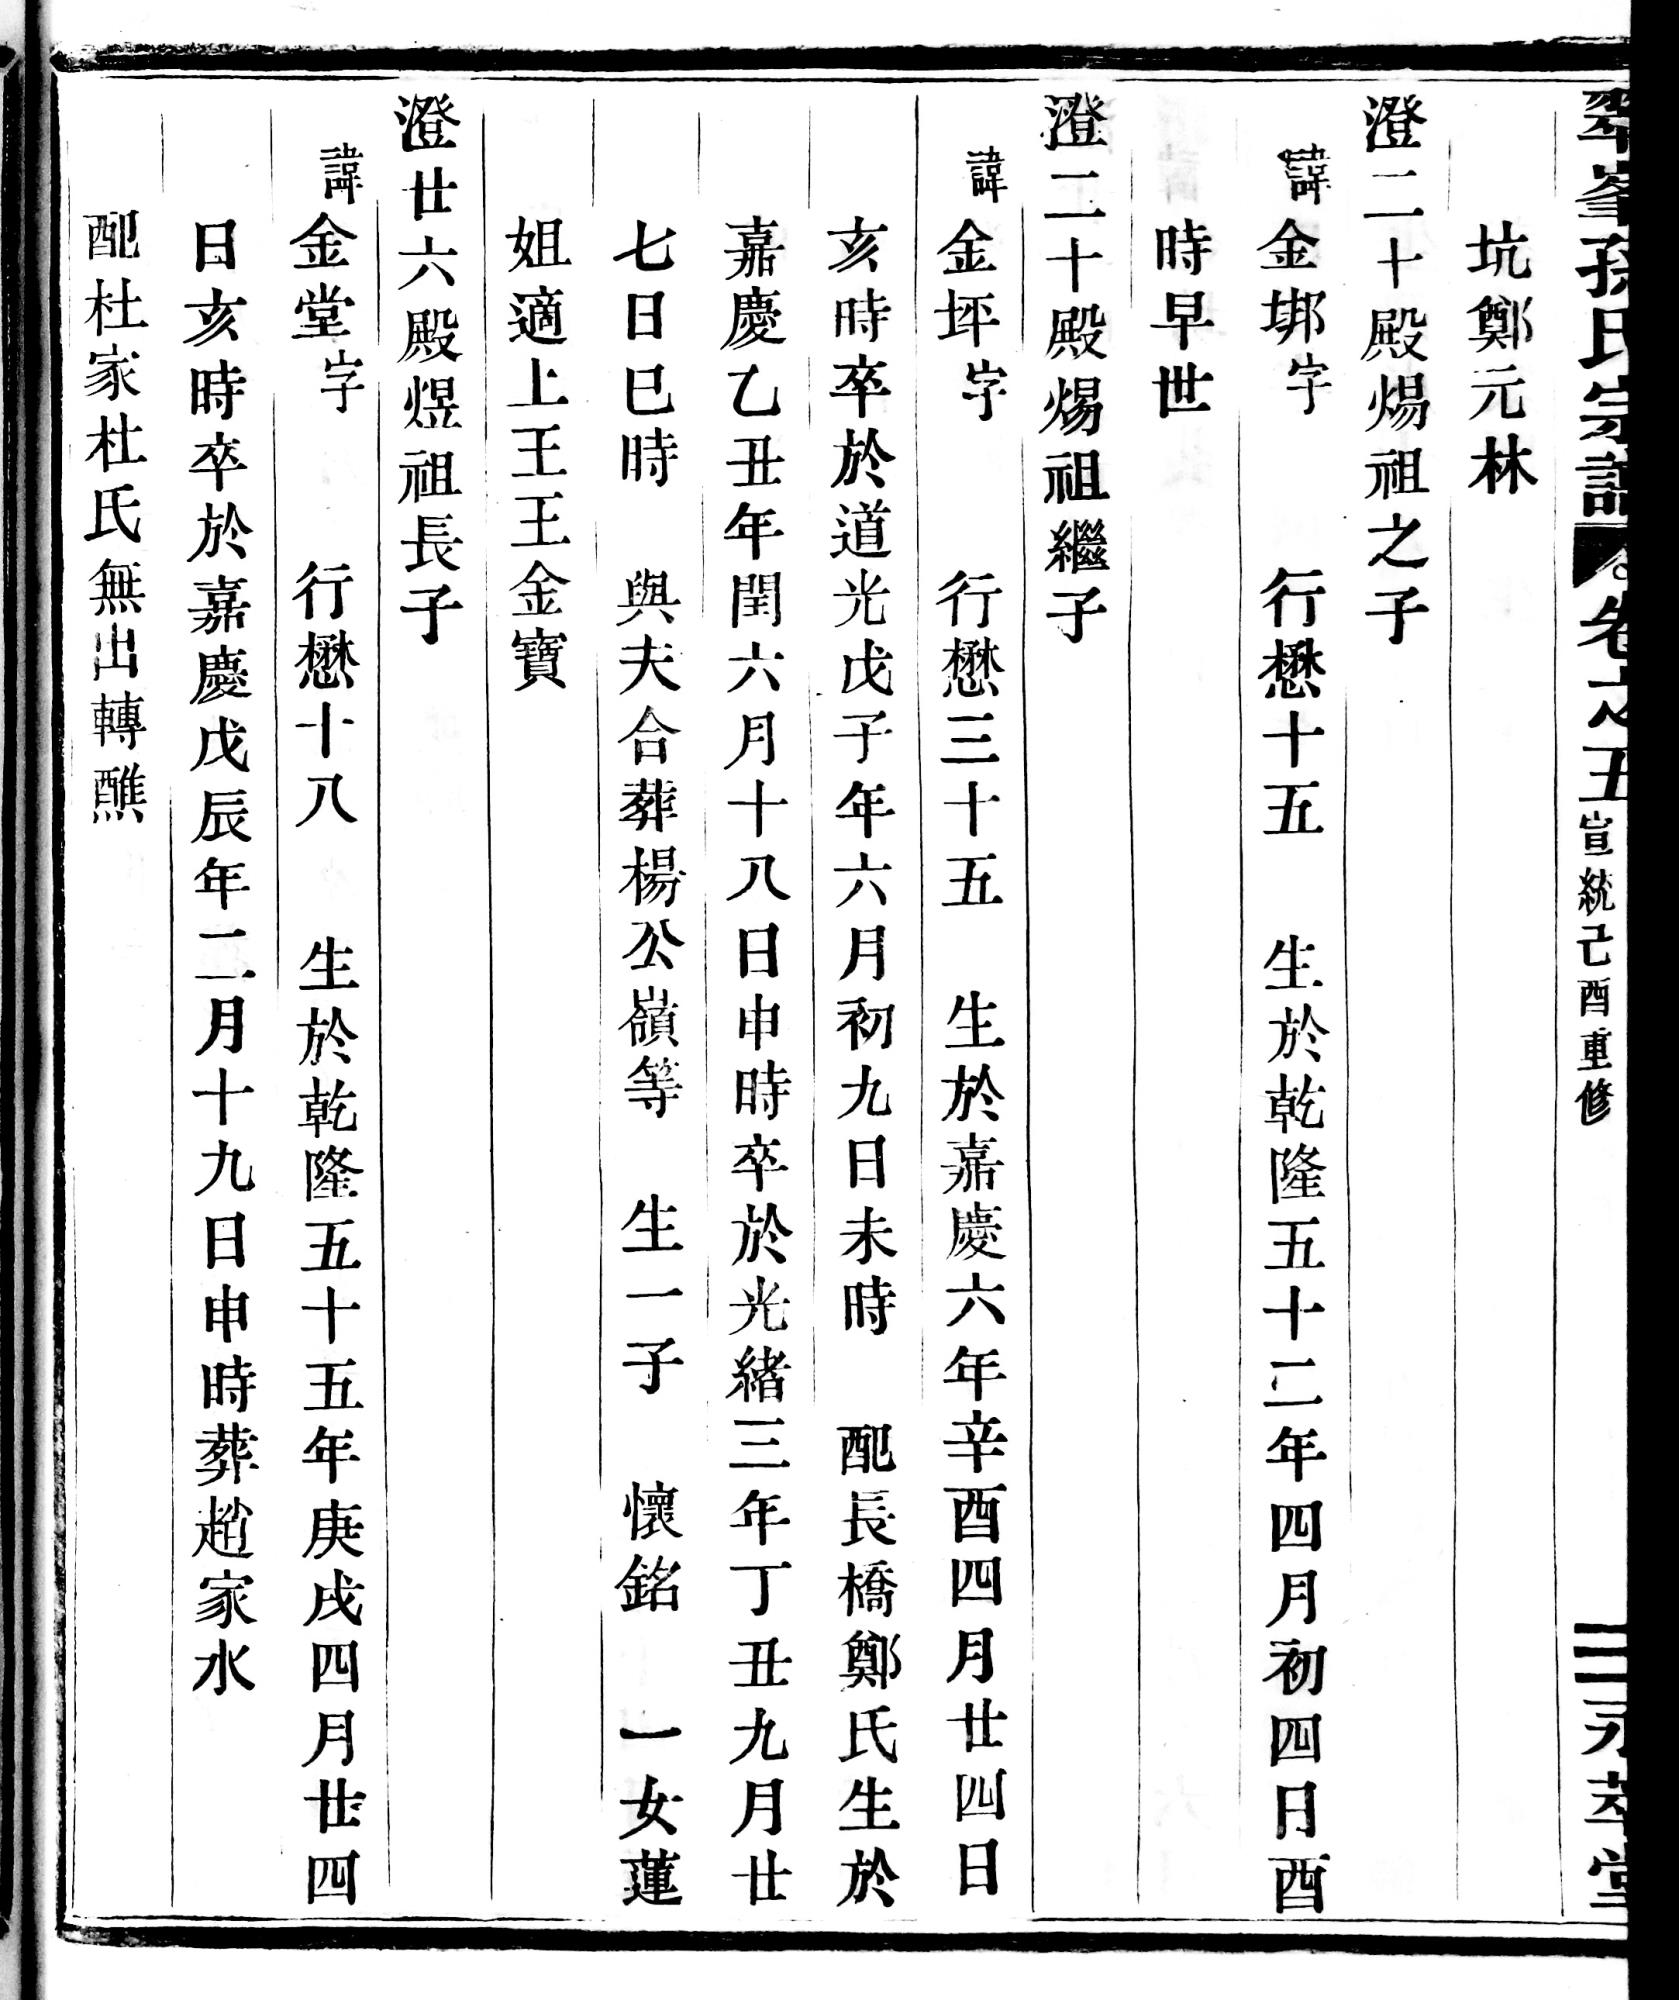 翠峯孫氏宗譜 卷之五 宣統己酉重修 二 永萃堂
坑鄭元林
澄二十殿煬祖之子
諱金㙃字 行懋十五 生於乾隆五十二年四月初四日酉
時早世
澄二十殿煬祖繼子
諱金坪字 行懋三十五 生於嘉慶六年辛酉四月廿四日
亥時卒於道光戊子年六月初九日未時 配長橋鄭氏生於
嘉慶乙丑年閏六月十八日申時卒於光緒三年丁丑九月廿
七日巳時 與夫合葬楊公嶺等 生一子 懷銘 一女蓮
姐適上王王金寶
澄廿六殿煜祖長子
諱金堂字 行懋十八 生於乾隆五十五年庚戌四月廿四
日亥時卒於嘉慶戊辰年二月十九日申時葬趙家水
配杜家杜氏無出轉醮